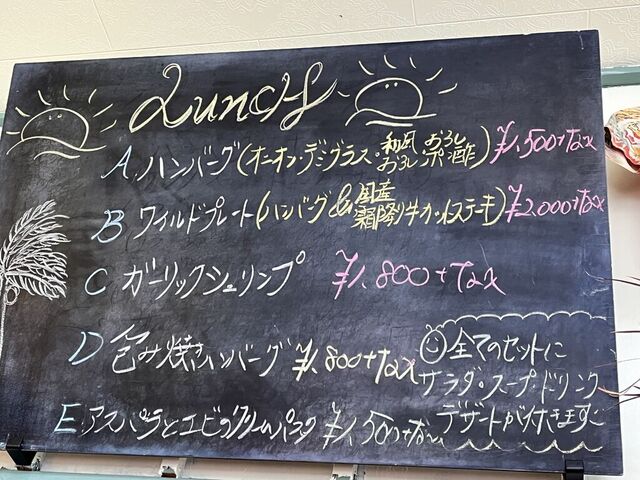 Lunch
A ハンバーグ(オニオン・デミグラス・和風おろし・おろしポン酢) ¥1,500+tax
B ワイルドプレート(ハンバーグ&国産霜降り牛カットステーキ) ¥2,000+tax
C ガーリックシュリンプ ¥1,800+tax
D 包み焼きハンバーグ ¥1,800+tax
E アスパラとエビのクリームパスタ ¥1,500+tax
全てのセットに
サラダ・スープ・ドリンク
デザートが付きます